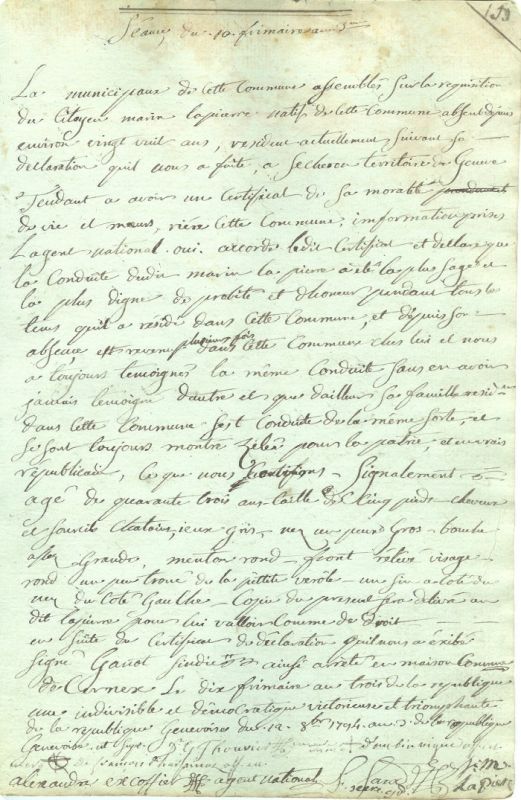 153
Séance du 10 frimaire an 3me
La municipaux de Cette Commune assemblés Sur la requisition
du Citoyen marin lapierre natif de Cette Commune absent depuis
environ vingt vuit ans, resident actuellement Suivant sa
declaration quil nous a faite, a Secheron territoire de Geneve
Tendant a avoir un Certificat de Sa morabté
de vie et mœurs, rière Cette Commune, information prises
Lagent national oui, accorde ledit Certifiat et declare que
la Conduite dudit marin la pierre a été la plus Sage et
la plus digne de probité et dhoneur pendant tous le
tems quil a residé dans Cette Commune, et depuis son
absence est revenu plusieurs fois dans Cette Commune ches lui et nous
a toujours temoignés la même Conduite Sans en avoir
jamais temoigné dautre et que dailleur Sa famille resid
dans Cette Commune Sest Conduite de la même Sorte, et
se sont toujours montré zelés pour la patrie, et vrais
républicain, Ce que nous Certifions - Signalement
agé de quarante trois ans taille de Cinq pieds cheveux
et Sourcils Chatains, ieux Gris, nez un peu Gros - bouche
assez Grande, menton rond - front rélevé visage
rond un peu troué de la pettite verole - un Sin a coté du
nez du Coté Gauche - Copie du present sera delivré au
dit lapierre pour lui valloir Comme de droit
en Suite du Certificat de déclaration quil nous a éxibé
Signé Gavot Sindic ainsi arreté en maison Commune
de Cernex Le dix frimaire an trois de la republique
une indivisible et démocratique victorieuse et triomphante
de la republique Genevoise du 12. 8bre 1794. an 3 de la republique
Genevoise et
alexandre excoffier agent national